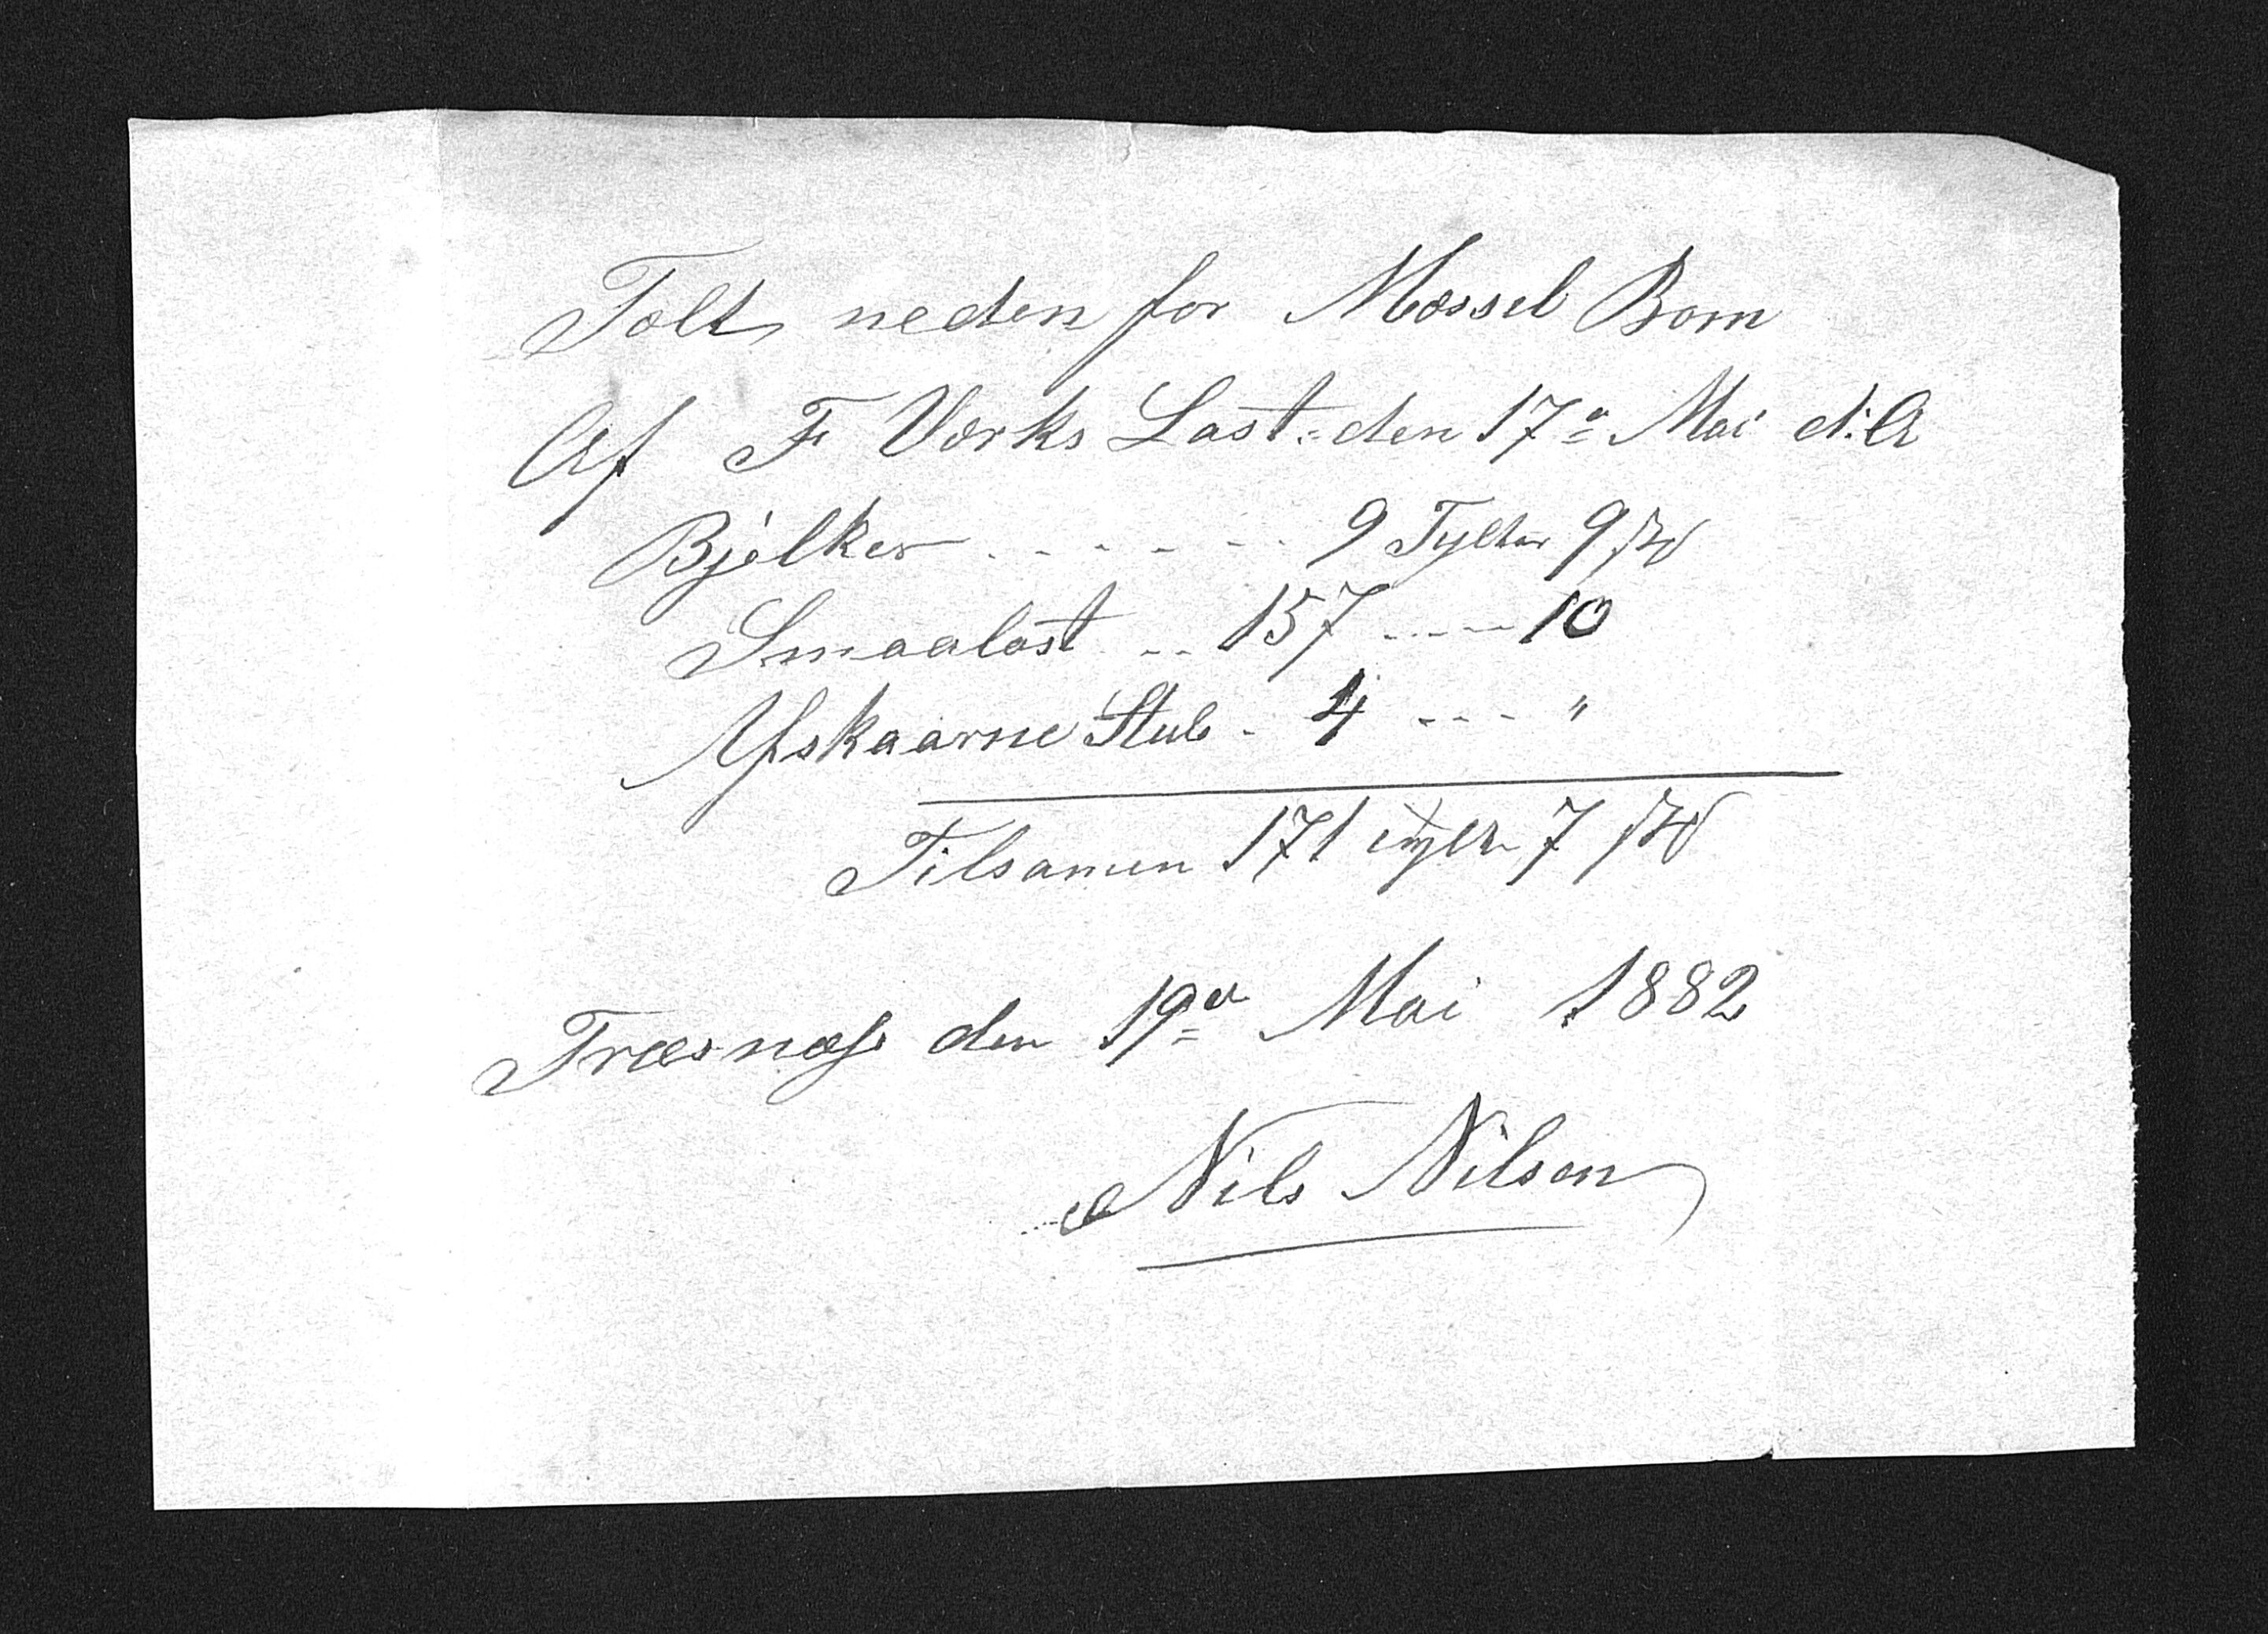 Tolt neden for Mossel Bom
Af F Værks Last. den 17de Mai d:A
Bjelker - - - - - - 9 Tylter 9 St
Smaalast - - 157 - - - - 10
Afskaarne Stub - 4 - - - "
Tilsamen 171 tylter 7 St
Træsnæs den 19de Mai 1882
Nils Nilsen